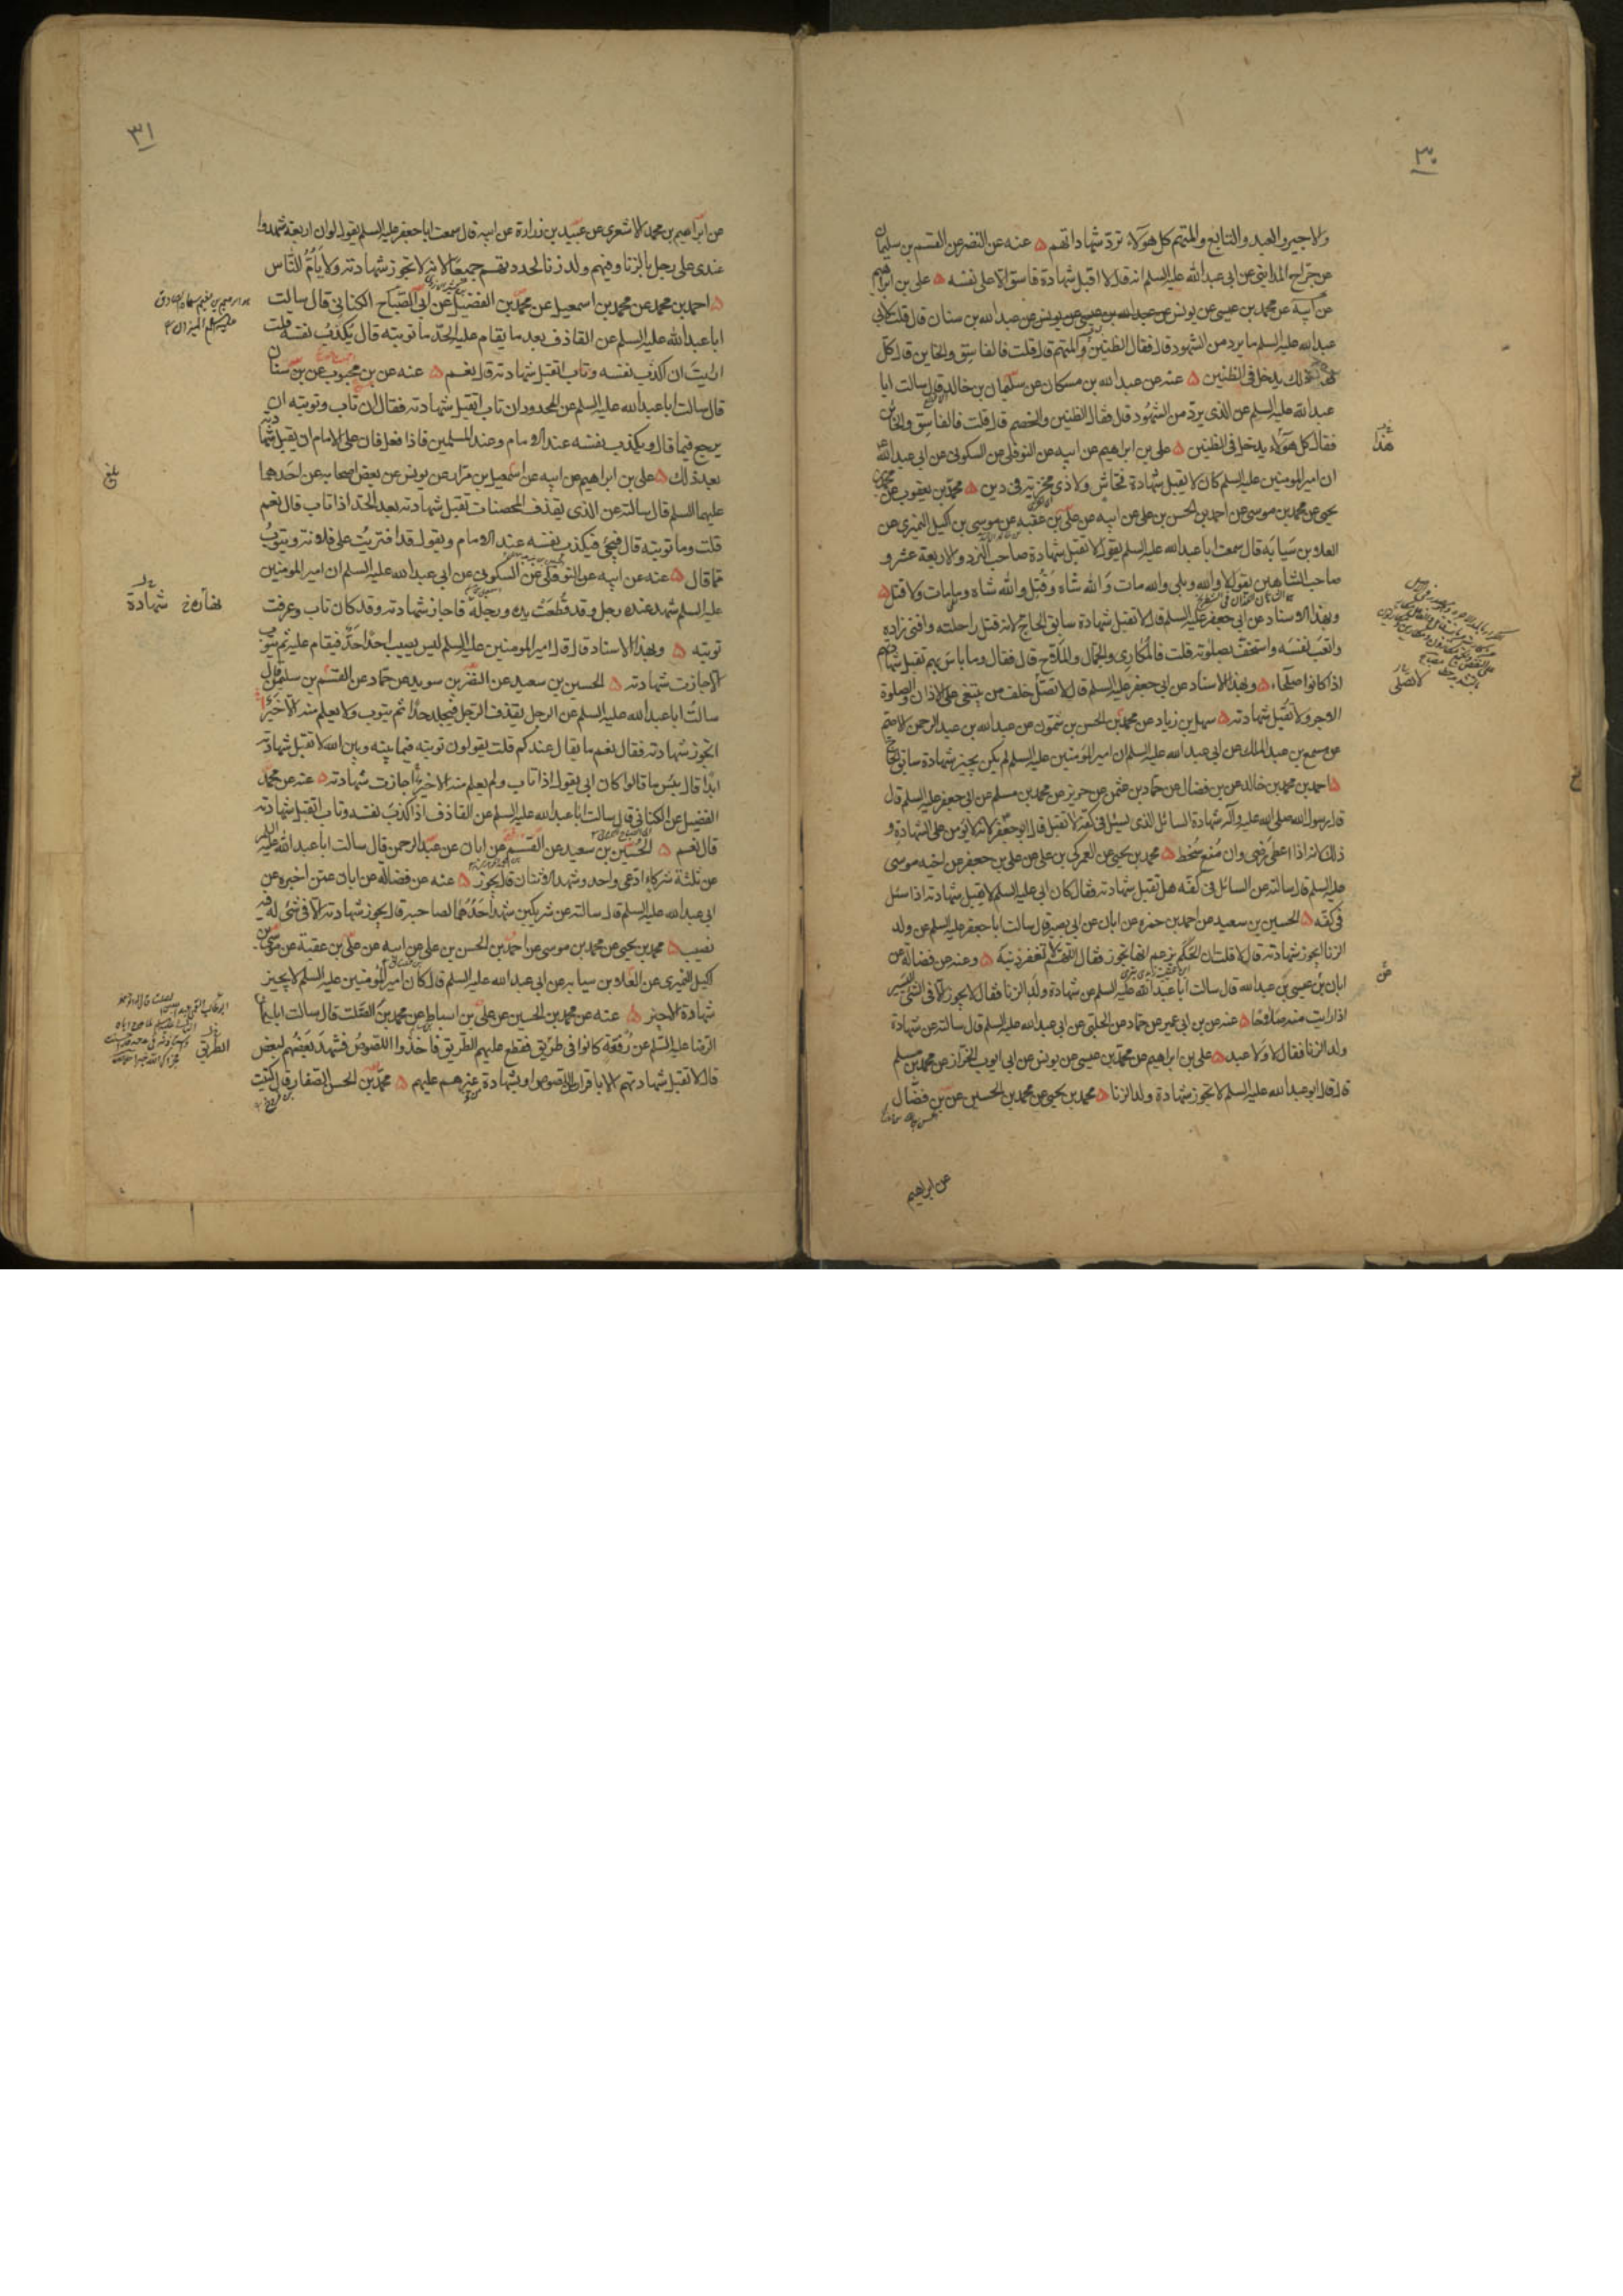 ٣٠
والاجير والعبد والتابع والمتهم كل هؤلاء تردّ شهاداتهم ۵ عنه عن النضر عن القسم بن سليمان
عن جراح المدايني عن ابي عبد الله عليه السلم انه قال لا اقبل شهادة فاسق الا على نفسه ۵ علي بن ابراهيم
عن ابيه عن محمد بن عيسى عن يونس عن عبد الله بن سنان قال قلت لابي
عبد الله عليه السلم ما يرد من الشهود قال فقال الظنين والمتهم قال قلت فالفاسق والخاين قال كل
ذلك يدخل في الظنين ۵ عنه عن عبد الله بن مسكان عن سليمان بن خالد قال سالت ابا
عبد الله عليه السلم عن الذي يردّ من الشهود قال فقال الظنين والخصم قال قلت فالفاسق والخائن
فقال كل هؤلاء يدخل في الظنين ۵ علي بن ابراهيم عن ابيه عن النوفلي عن السكوني عن ابي عبد الله
ان امير المومنين عليه السلم كان لا يقبل شهادة فحّاش ولا ذي مخزية في دين ۵ محمد بن يعقوب عن محمد بن
يحيى عن محمد بن موسى عن احمد بن الحسن بن علي عن ابيه عن علي بن عقبه عن موسى بن اكيل النميري عن
العلا بن سيابه قال سمعت ابا عبد الله عليه السلم يقول لا تقبل شهادة صاحب النرد والاربعة عشر و
صاحب الشاهين يقول لا والله وبلى والله مات والله شاه وقُتل والله شاه وما مات ولا قتل ۵
وبهذا الاسناد عن ابي جعفر عليه السلم قال لا تقبل شهادة سابق الحاج لانه قتل راحلته وافنى زاده
واتعب نفسه واستخفّ بصلوته قلت فالمكاري والجمال والملاح قال فقال وما باس بهم تقبل شهادتهم
اذا كانوا صلحاء ۵ وبهذا الاسناد عن ابي جعفر عليه السلم قال لا تصل خلف من يبتغي على الاذان والصلوة
الاجر ولا تقبل شهادته ۵ سهل بن زياد عن محمد بن الحسن بن شمّون عن عبد الله بن عبد الرحمن الاصم
عن مسمع بن عبد الملك عن ابي عبد الله عليه السلم ان امير المومنين عليه السلم لم يكن يجيز شهادة سابق الحاج
۵ احمد بن محمد بن خالد عن بن فضال عن حماد بن عثمن عن حريز عن محمد بن مسلم عن ابي جعفر عليه السلم قال
قال رسول الله صلى الله عليه وآله شهادة السائل الذي يسئل في كفه لا تقبل قال ابو جعفر لانه لا يؤمن على الشهادة و
ذلك انه اذا اعطى رضي وان منع سخط ۵ محمد بن يحيى عن العمركي بن علي عن علي بن جعفر عن اخيه موسى
عليه السلم قال سالته عن السائل في كفه هل تقبل شهادته فقال كان ابي عليه السلم لا يقبل شهادته اذا سئل
في كفه ۵ الحسين بن سعيد عن احمد بن حمزه عن ابان عن ابي بصير قال سالت ابا جعفر عليه السلم عن ولد
الزنا ايجوز شهادته قال لا قلت ان الحكم يزعم انها تجوز فقال اللهم لا تغفر ذنبه ۵ وعنه عن فضاله عن
ابان عن عيسى بن عبد الله قال سالت ابا عبد الله عليه السلم عن شهادة ولد الزنا فقال لا يجوز الا في الشئ اليسير
اذا رايت منه صلاحا ۵ عنه عن بن ابي عمير عن حماد عن الحلبي عن ابي عبد الله عليه السلم قال سالته عن شهادة
ولد الزنا فقال لا ولا عبد ۵ علي بن ابراهيم عن محمد بن عيسى عن يونس عن ابي ايوب الخزاز عن محمد بن مسلم
قال قال ابو عبد الله عليه السلم لا تجوز شهادة ولد الزنا ۵ محمد بن يحيى عن محمد بن الحسين عن بن فضّال
عن ابراهيم
هذا
لا تصلى
٣١
عن ابراهيم بن محمد الاشعري عن عبيد بن زرارة عن ابيه قال سمعت ابا جعفر عليه السلم يقول لو ان اربعة شهدوا
عندي على رجل بالزنا وفيهم ولد زنا لحددتهم جميعا لانه لا تجوز شهادته ولا يأم الناس
۵ احمد بن محمد عن محمد بن اسمعيل عن محمد بن الفضيل عن ابي الصباح الكناني قال سالت
ابا عبد الله عليه السلم عن القاذف بعد ما يقام عليه الحد ما توبته قال يكذب نفسه قلت
ارايت ان اكذب نفسه وتاب اتقبل شهادته قال نعم ۵ عنه عن بن محبوب عن بن سنان
قال سالت ابا عبد الله عليه السلم عن المحدود ان تاب اتقبل شهادته فقال ان تاب وتوبته ان
يرجع فيما قال ويكذب نفسه عند الامام وعند المسلمين فاذا فعل فان على الامام ان يقبل شهادته
بعد ذلك ۵ علي بن ابراهيم عن ابيه عن اسمعيل بن مرار عن يونس عن بعض اصحابه عن احدهما
عليهما السلم قال سالته عن الذي يقذف المحصنات تقبل شهادته بعد الحد اذا تاب قال نعم
قلت وما توبته قال فيجئ فيكذب نفسه عند الامام ويقول قد افتريت على فلانة ويتوب
مما قال ۵ عنه عن ابيه عن النوفلي عن السكوني عن ابي عبد الله عليه السلم ان امير المومنين
عليه السلم شهد عنده رجل وقد قُطعت يده ورجله فاجاز شهادته وقد كان تاب وعرفت
توبته ۵ وبهذا الاسناد قال قال امير المومنين عليه السلم ليس يصيب احدا حدّ فيقام عليه ثم يتوب
الا جازت شهادته ۵ الحسين بن سعيد عن النضر بن سويد عن حماد عن القسم بن سليمن قال
سالت ابا عبد الله عليه السلم عن الرجل يقذف الرجل فيجلد حدا ثم يتوب ولا يعلم منه الا خيرا
اتجوز شهادته فقال نعم ما يقال عندكم قلت يقولون توبته فيما بينه وبين الله لا تقبل شهادته
ابدا قال بئس ما قالوا كان ابي يقول اذا تاب ولم يعلم منه الا خيرا جازت شهادته ۵ عنه عن محمد
الفضيل عن الكناني قال سالت ابا عبد الله عليه السلم عن القاذف اذا اكذب نفسه وتاب اتقبل شهادته
قال نعم ۵ الحسين بن سعيد عن القسم عن ابان عن عبد الرحمن قال سالت ابا عبد الله عليه السلم
عن ثلثة شركاء ادعى واحد وشهد الاثنان قال يجوز ۵ عنه عن فضاله عن ابان عمن اخبره عن
ابي عبد الله عليه السلم قال سالته عن شريكين شهد احدهما لصاحبه قال يجوز شهادته الا في شئ له فيه
نصيب ۵ محمد بن يحيى عن محمد بن موسى عن احمد بن الحسن بن علي عن ابيه عن علي بن عقبة عن موسى بن
اكيل النميري عن العلا بن سيابه عن ابي عبد الله عليه السلم قال كان امير المومنين عليه السلم لا يجيز
شهادة الاجير ۵ عنه عن محمد بن الحسين عن علي بن اسباط عن محمد بن الصلت قال سالت ابا
الرضا عليه السلم عن رفقة كانوا في طريق فقطع عليهم الطريق فاخذوا اللصوص فشهد بعضهم لبعض
قال لا تقبل شهادتهم الا باقرار اللصوص او بشهادة غيرهم عليهم ۵ محمد بن الحسن الصفار قال كتبت
بلغ
شهادة
الطريق